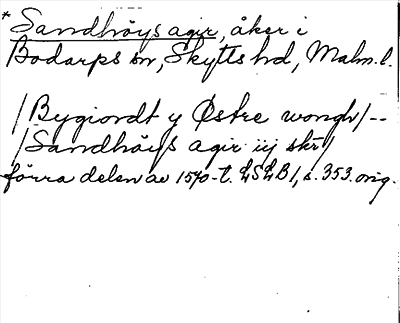 * Sandhöys agir, åker i
Bodarps sn, Skytts hd, Malm. l.
/Bygiordt y Østre wongh/--
/Sandhöys agir iij skr/
förra delen av 1570-t. LSLB 1, s. 353. orig.